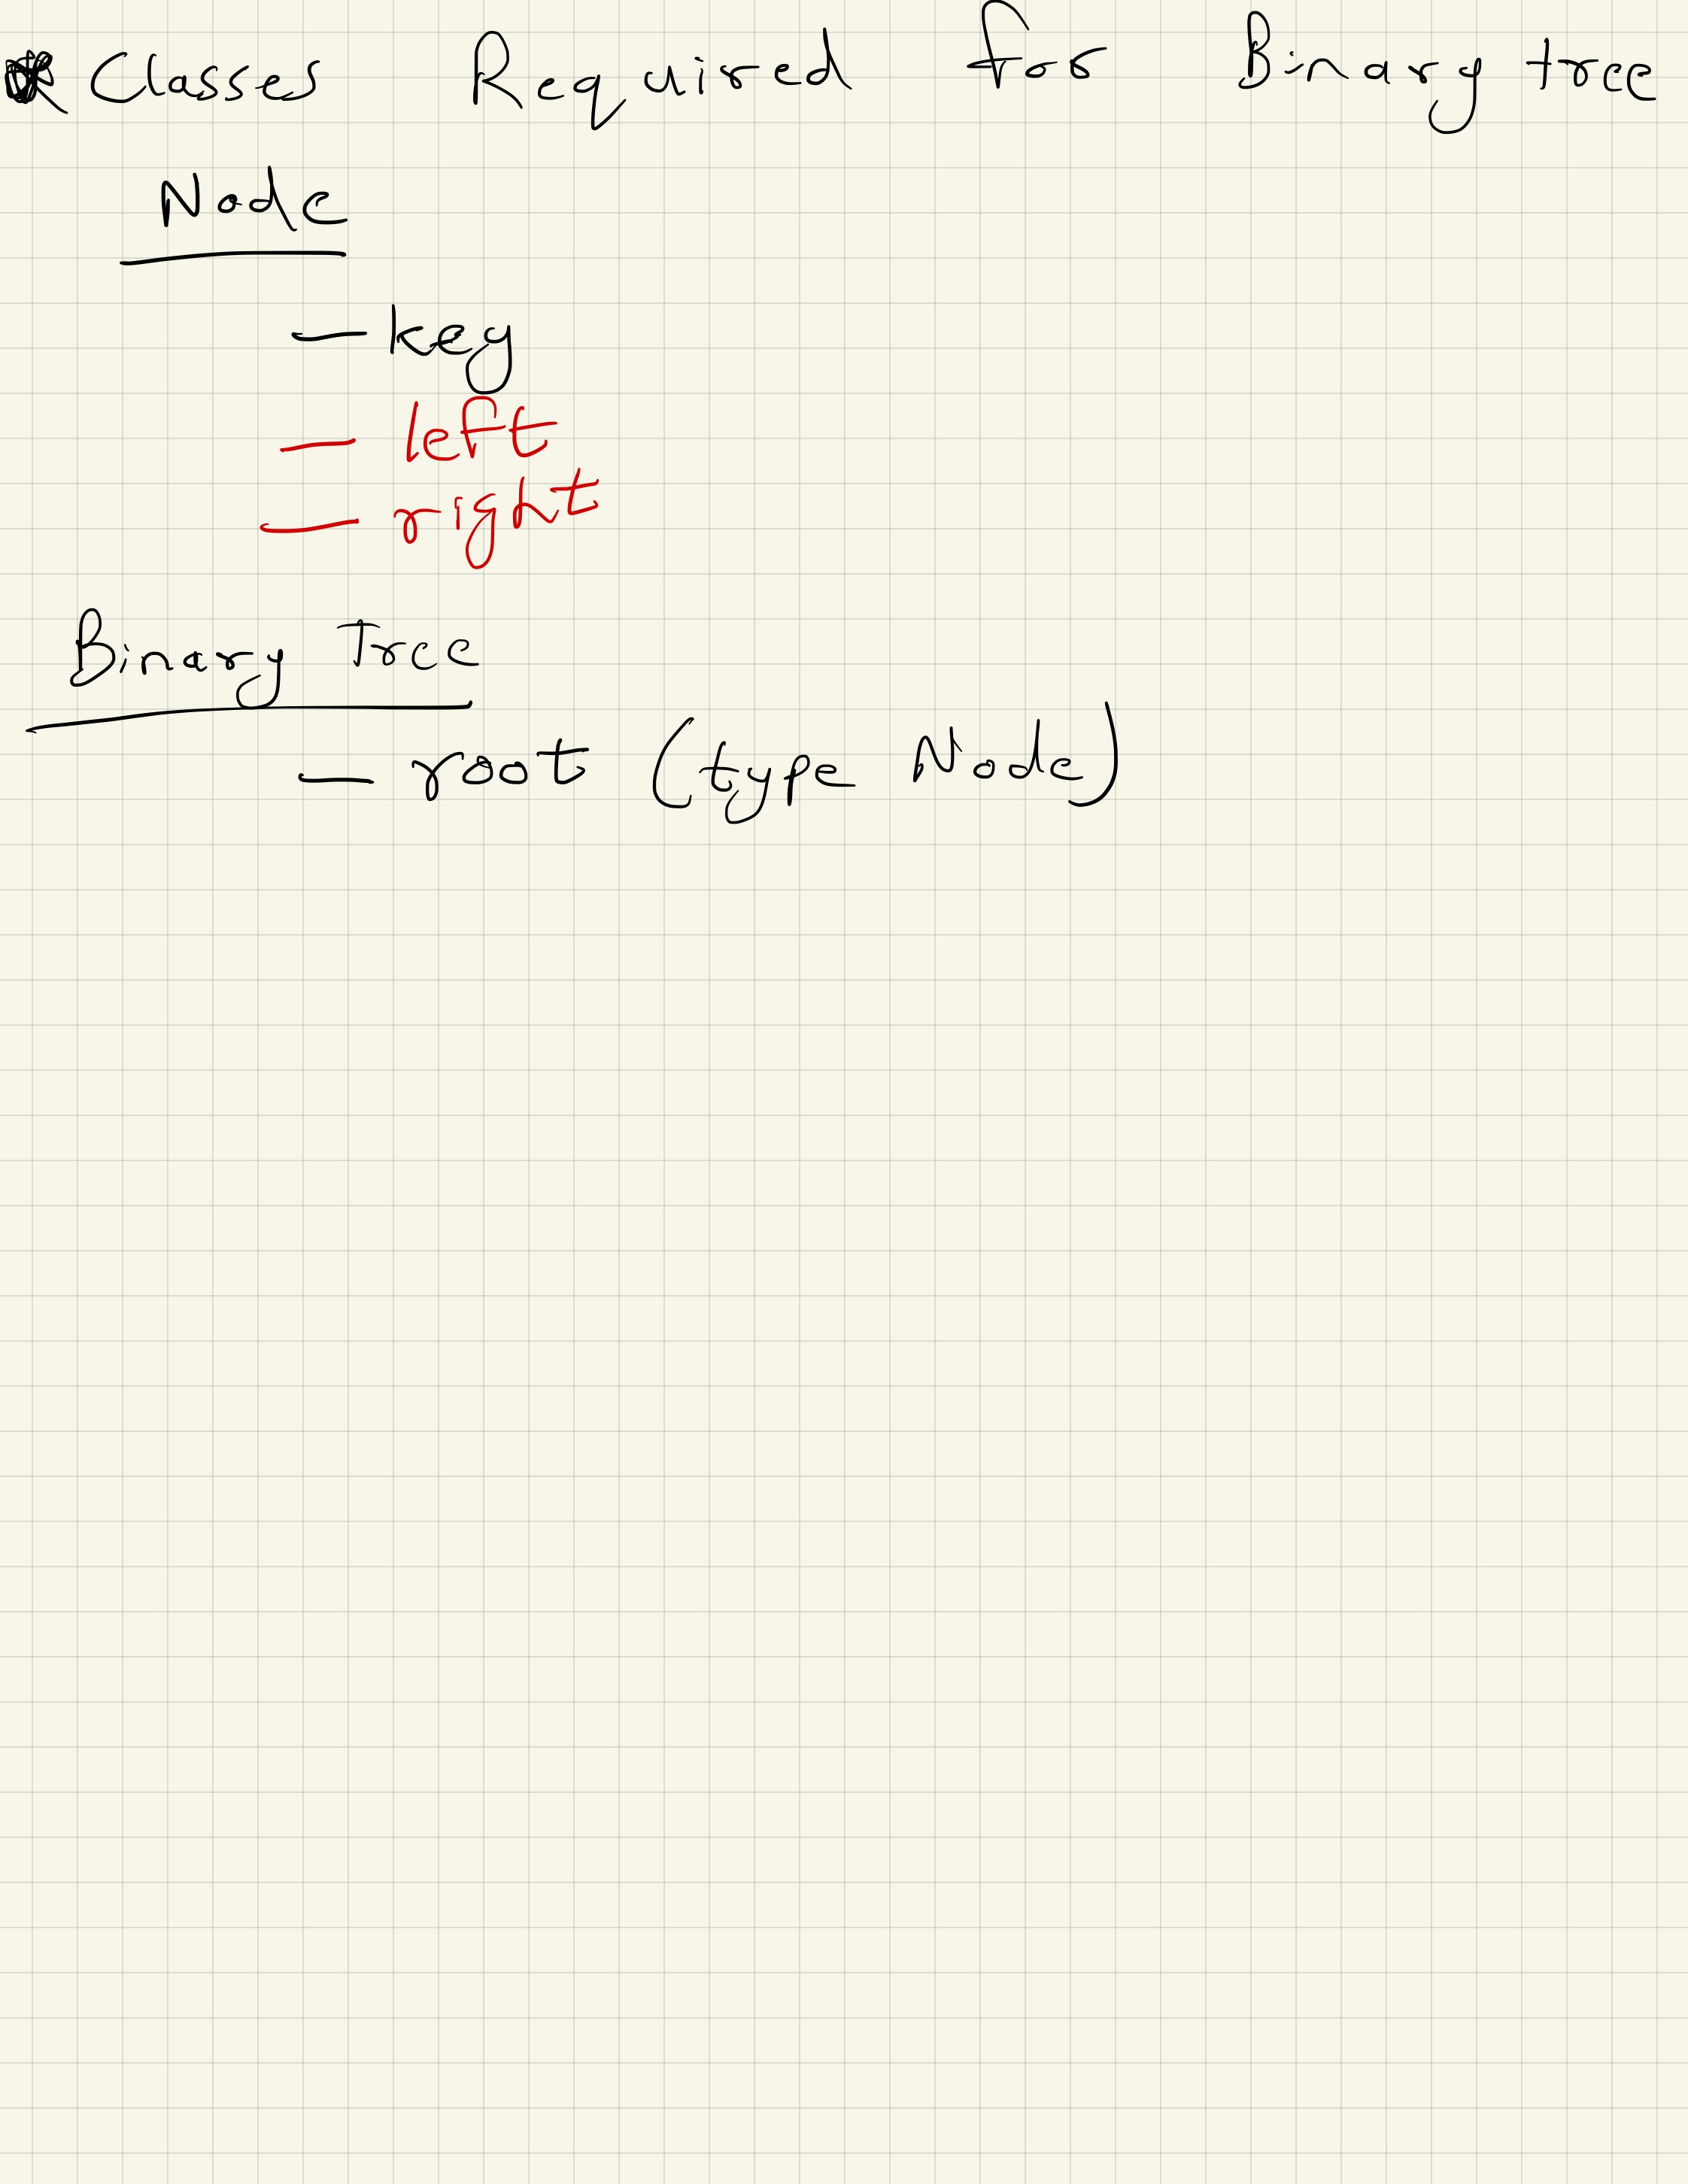 * Classes Required for Binary tree
Node
- key
- left
- right
Binary Tree
- root (type Node)